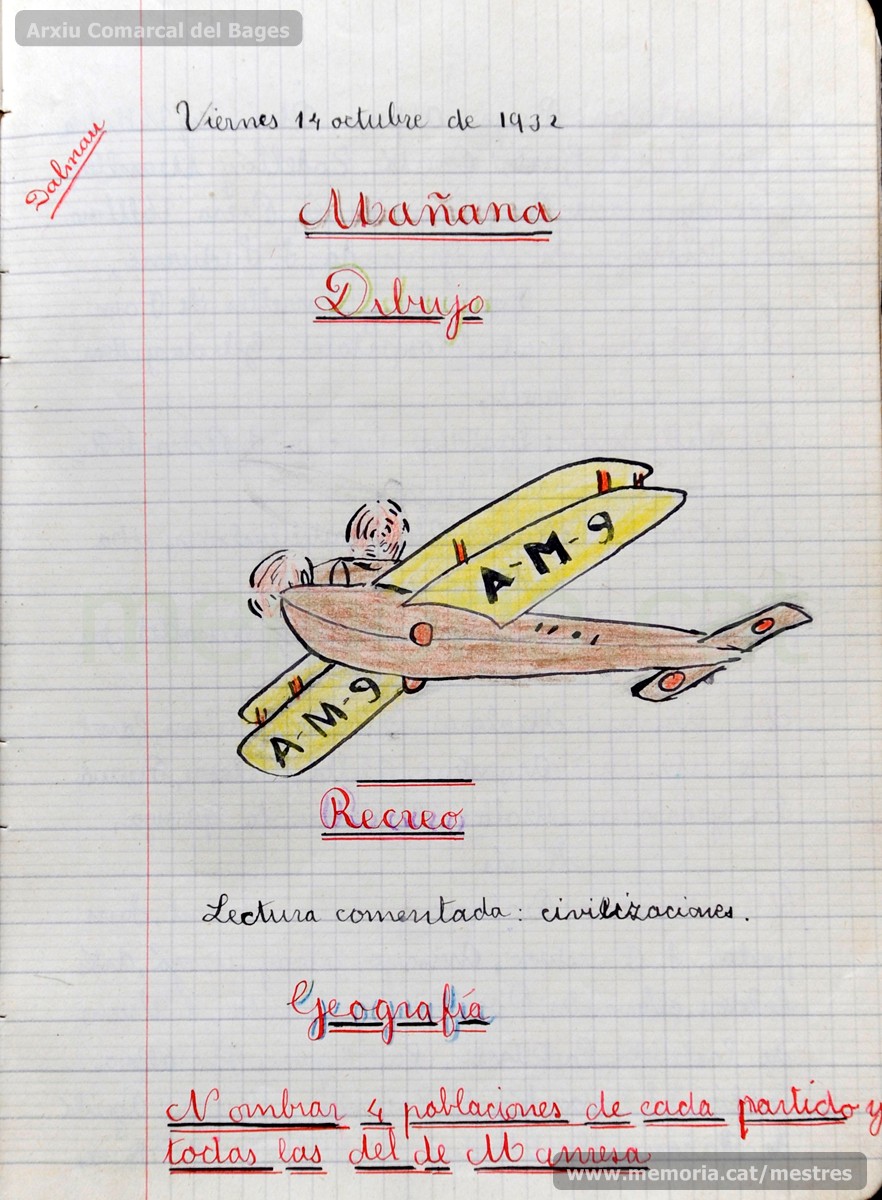 Arxiu Comarcal del Bages
Viernes 14 octubre de 1932
Dalmau
Mañana
Dibujo
A-M-9
A-M-9
Recreo
Lectura comentada: civilizaciones.
Geografía
Nombrar 4 poblaciones de cada partido y
todas las del de Manresa
www.memoria.cat/mestres